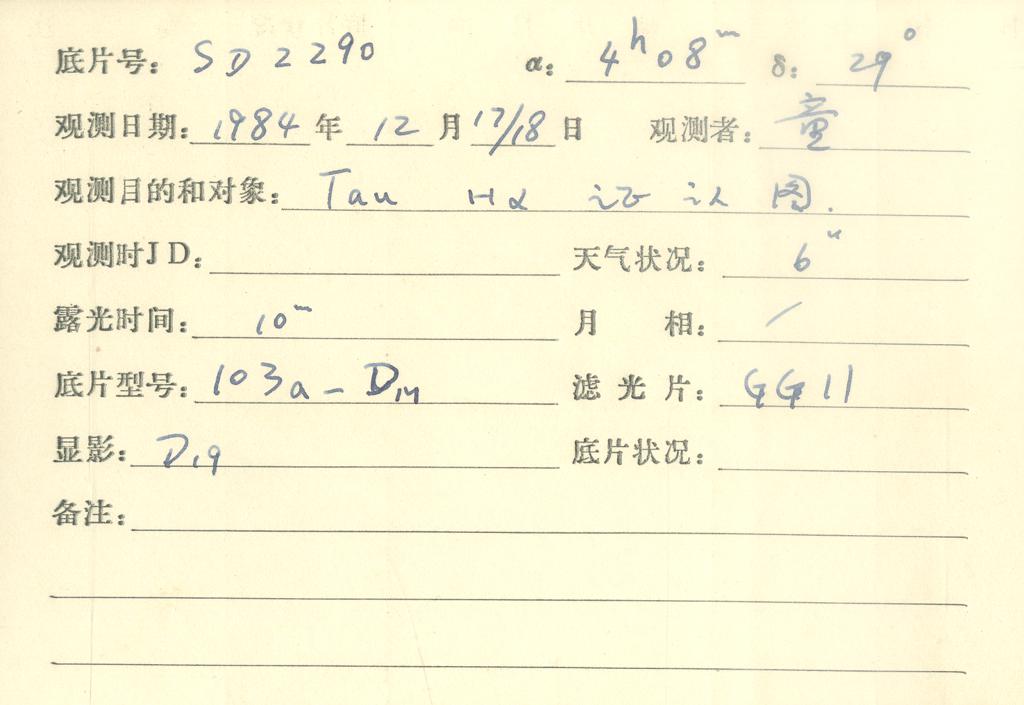 底片号: SD2290 α: 4h08m δ: 29°
观测日期: 1984年12月17/18日 观测者: 童
观测目的和对象: Tau Hα 证认图.
观测时JD: 天气状况: 6"
露光时间: 10m 月相: /
底片型号: 103a-D 滤光片: GG11
显影: D19 底片状况:
备注: